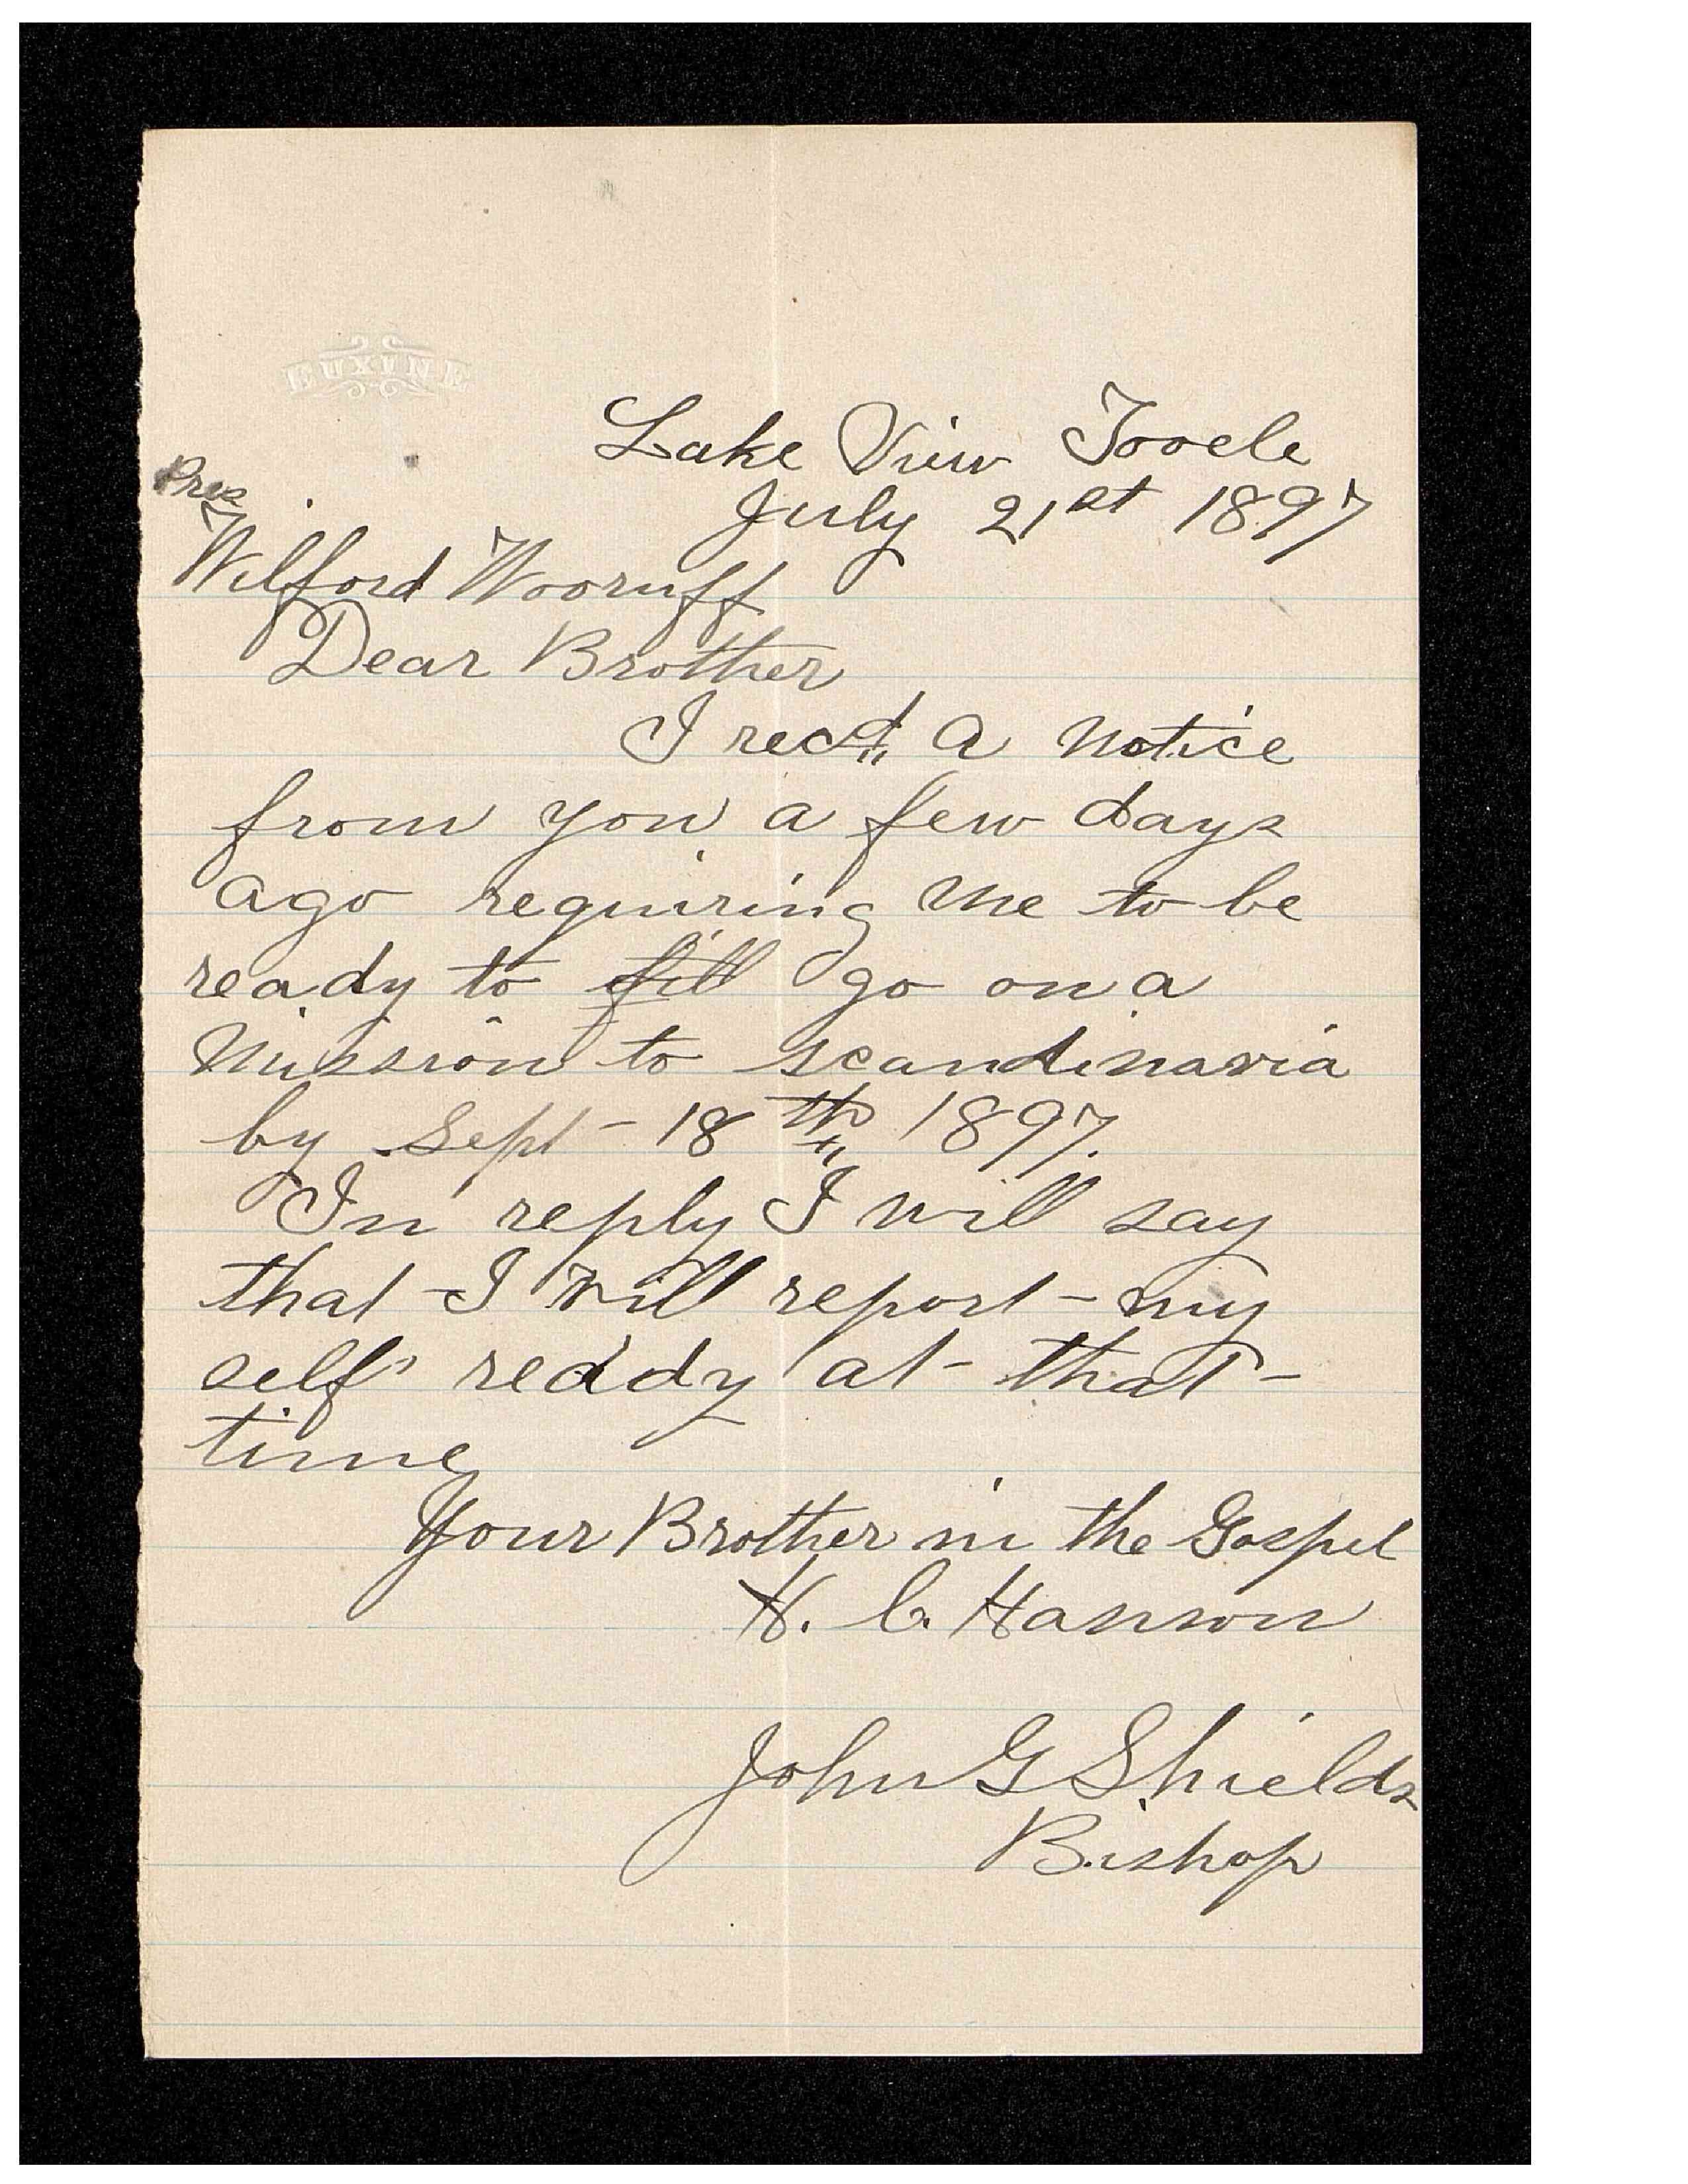 EUXINE
Lake View Tooele
July 21st 1897
Pres
Wilford Wooruff
Dear Brother
I recd a notice
from you a few days
ago requiring me to be
ready to fill go on a
mission to scandinavia
by Sept - 18th 1897.
In reply I will say
that I will report - my
self ready at - that -
time
Your Brother in the Gospel
H. C. Hanson
John G Shields
Bishop